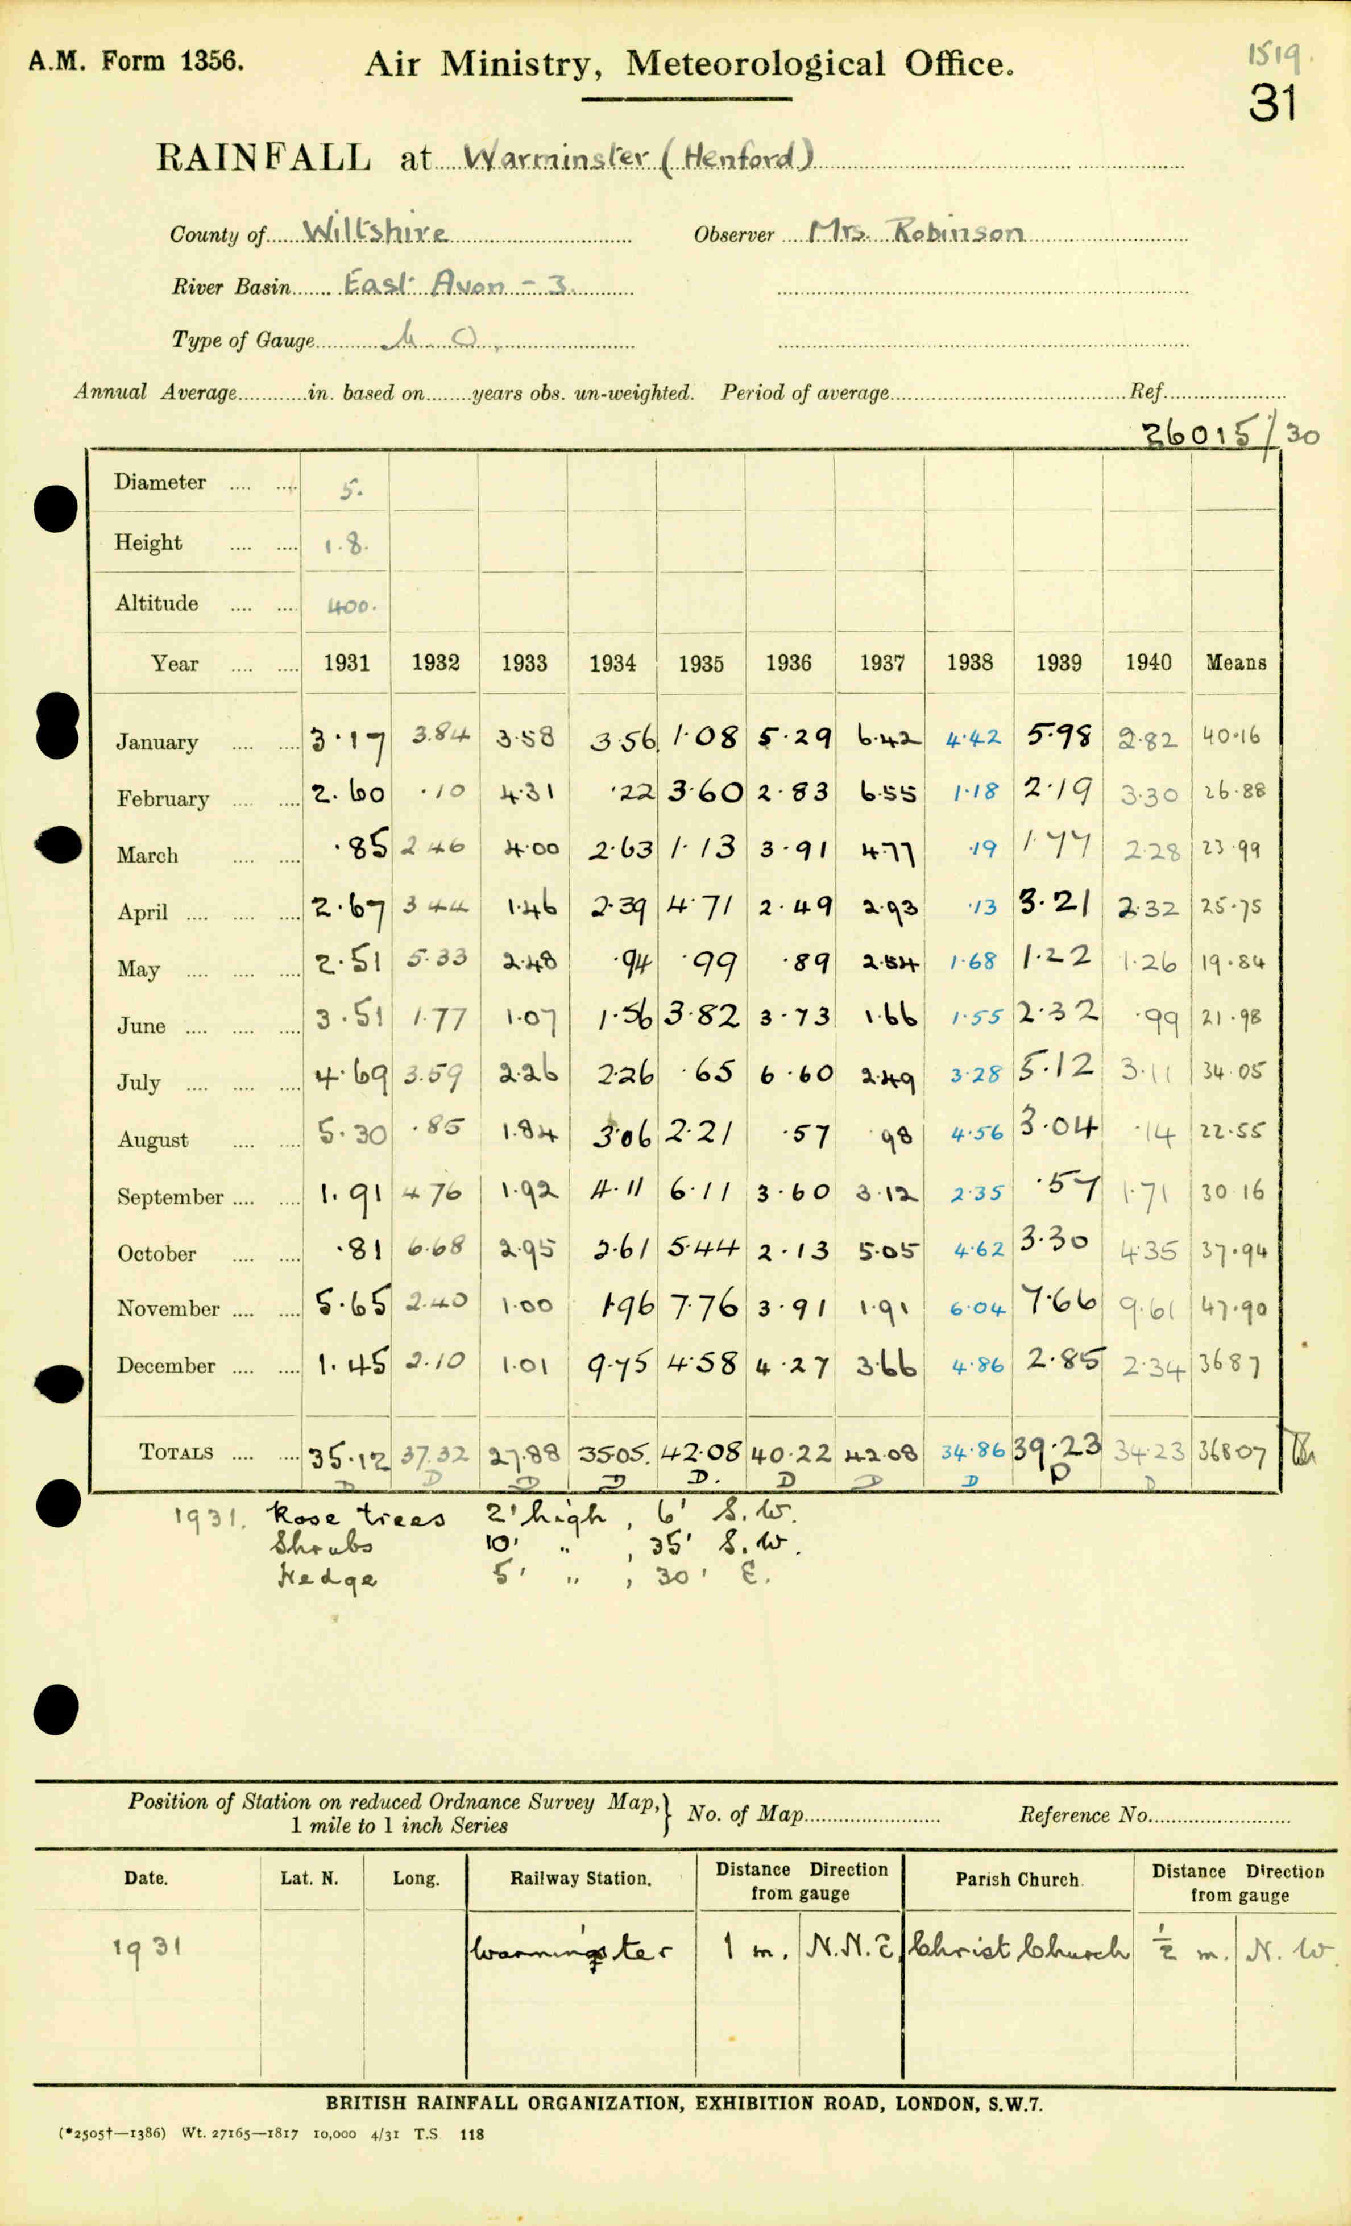 A.M. Form 1356.
Air Ministry, Meteorological Office.
1519.
31
RAINFALL at Warminster (Henford)
County of Wiltshire Observer Mrs. Robinson
River Basin East Avon - 3.
Type of Gauge M. O.
Annual Average in. based on years obs. un-weighted. Period of average Ref.
26015/30
Diameter 5.
Height 1.8.
Altitude 400.
Year 1931 1932 1933 1934 1935 1936 1937 1938 1939 1940 Means
January 3.17 3.84 3.58 3.56 1.08 5.29 6.42 4.42 5.98 2.82 40.16
February 2.60 .10 4.31 .22 3.60 2.83 6.55 1.18 2.19 3.30 26.88
March .85 2.46 4.00 2.63 1.13 3.91 4.77 .19 1.77 2.28 23.99
April 2.67 3.44 1.46 2.39 4.71 2.49 2.93 .13 3.21 2.32 25.75
May 2.51 5.33 2.48 .94 .99 .89 2.54 1.68 1.22 1.26 19.84
June 3.51 1.77 1.07 1.56 3.82 3.73 1.66 1.55 2.32 .99 21.98
July 4.69 3.59 2.26 2.26 .65 6.60 2.49 3.28 5.12 3.11 34.05
August 5.30 .85 1.84 3.06 2.21 .57 .98 4.56 3.04 .14 22.55
September 1.91 4.76 1.92 4.11 6.11 3.60 3.12 2.35 .57 1.71 30.16
October .81 6.68 2.95 2.61 5.44 2.13 5.05 4.62 3.30 4.35 37.94
November 5.65 2.40 1.00 1.96 7.76 3.91 1.91 6.04 7.66 9.61 47.90
December 1.45 2.10 1.01 9.75 4.58 4.27 3.66 4.86 2.85 2.34 36 87
TOTALS 35.12 37.32 27.88 35.05. 42.08 40.22 42.08 34.86 39.23 34.23 368.07
D D D D D. D D D D D
1931. Rose trees 2' high, 6' S.W.
Shrubs 10' " , 35' S.W.
Hedge 5' " , 30' E.
Position of Station on reduced Ordnance Survey Map, } No. of Map Reference No.
1 mile to 1 inch Series
Date. Lat. N. Long. Railway Station. Distance Direction from gauge Parish Church. Distance Direction from gauge
1931 Warminster 1 m. N.N.E. Christ Church ½ m. N. W.
BRITISH RAINFALL ORGANIZATION, EXHIBITION ROAD, LONDON, S.W.7.
(*2505†—1386) Wt. 27165—1817 10,000 4/31 T.S 118